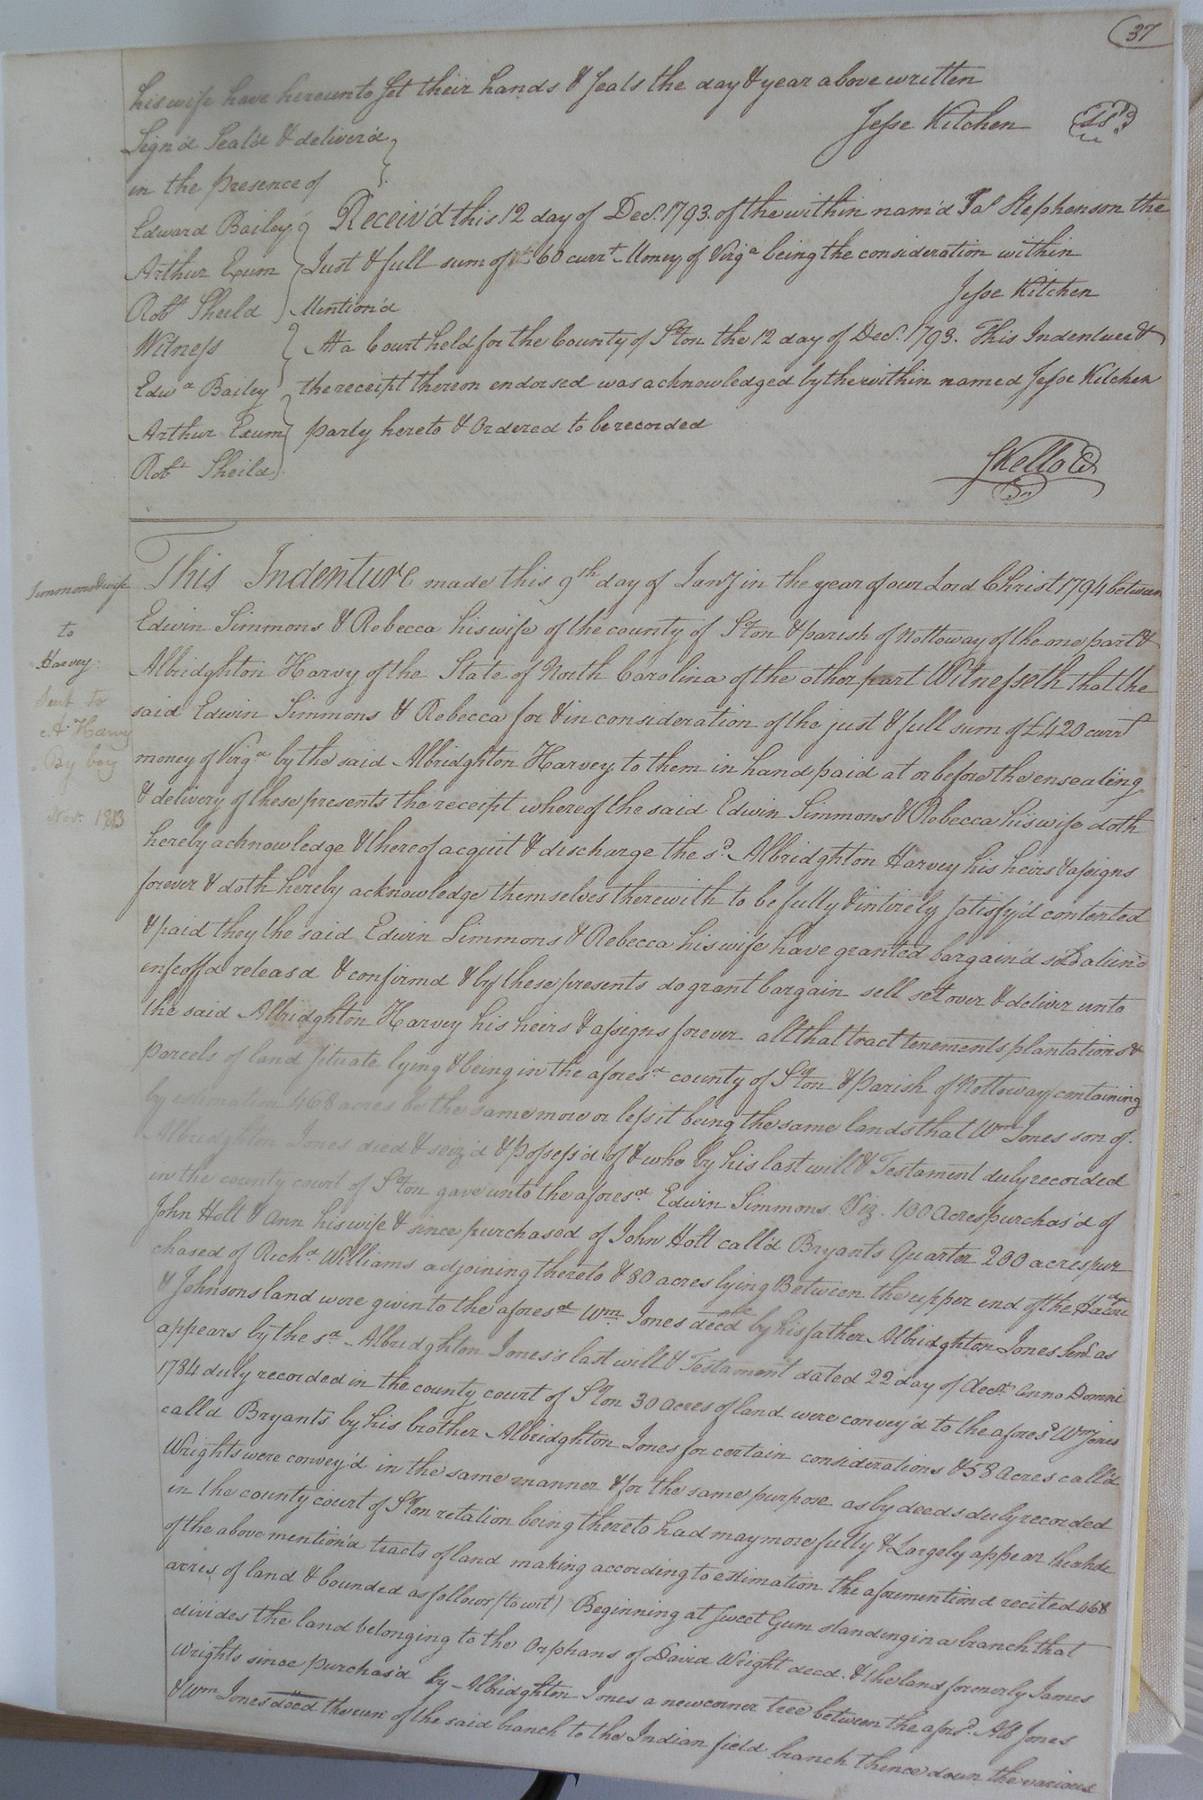 37
his wife have hereunto set their hands & seals the day & year above written
Sign'd Seal'd & deliver'd
Jesse Kitchen
in the presence of
Edward Bailey
Arthur Exum
Robt Sheild
Receiv'd this 12 day of Decr. 1793. of the within nam'd Jas Stephenson the
Just & full sum of 60 currt Money of Virga being the consideration within
Mention'd
Jesse Kitchen
Witness
Edwd Bailey
Arthur Exum
Robt Sheild
At a Court held for the County of S'ton the 12 day of Decr. 1793. This Indenture &
the receipt thereon endorsed was acknowledged by the within named Jesse Kitchen
party hereto & Ordered to be recorded
SKello Ct
Simmons & wife
to
Harvey
Sent to
A Harvy
By boy
Novr. 1813
This Indenture made this 9th day of Jany in the year of our Lord Christ 1794 between
Edwin Simmons & Rebecca his wife of the county of S'ton & parish of Nottoway of the one part &
Albridghton Harvy of the State of North Carolina of the other part Witnesseth that the
said Edwin Simmons & Rebecca for & in consideration of the just & full sum of £420 currt
money of Virga by the said Albridghton Harvey to them in hand paid at or before the ensealing
& delivery of these presents the receipt whereof the said Edwin Simmons & Rebecca his wife doth
hereby acknowledge & thereof acquit & discharge the sd. Albridghton Harvey his heirs & assigns
forever & doth hereby acknowledge themselves therewith to be fully & intirely satisfy'd contented
& paid they the said Edwin Simmons & Rebecca his wife have granted bargain'd sold alien'd
infeoff'd releas'd & confirm'd & by these presents do grant bargain sell set over & deliver unto
the said Albridghton Harvey his heirs & assigns forever all that tract tenements plantations &
parcels of land situate lying & being in the aforesd county of S'ton & Parish of Nottoway containing
by estimation 468 acres be the same more or less it being the same lands that Wm Jones son of
Albridghton Jones died & seiz'd & Possess'd of & who by his last will & Testament duly recorded
in the county court of S'ton gave unto the aforesd Edwin Simmons Viz. 100 Acres purchas'd of
John Holt & Ann his wife & since purchased of John Holt call'd Bryants Quarter 200 acres pur
chased of Richd Williams adjoining thereto & 80 acres lying Between the upper end of the
& Johnsons land were given to the aforesd Wm Jones decd by his father Albridghton Jones Senr as
appears by the sd Albridghton Jones's last will & Testament dated 22 day of Decr. Anno Domini
1784 duly recorded in the county court of S'ton 30 Acres of land were convey'd to the aforesd Wm Jones
call'd Bryants by his brother Albridghton Jones for certain considerations & 58 Acres call'd
Wrights were convey'd in the same manner & for the same purpose as by deeds duly recorded
in the county court of S'ton retation being thereto had may more fully & Largely appear the hole
of the above mention'd tracts of land making according to estimation the aforemention'd recited 468
acres of land & bounded as follows (to wit) Beginning at Sweet Gum standing in a branch that
divides the land belonging to the Orphans of David Wright decd. & the land formerly James
Wrights since purchas'd by Albridghton Jones a new corner tree between the aforsd. Alb Jones
& Wm Jones decd the run of the said branch to the Indian field branch thence down the various